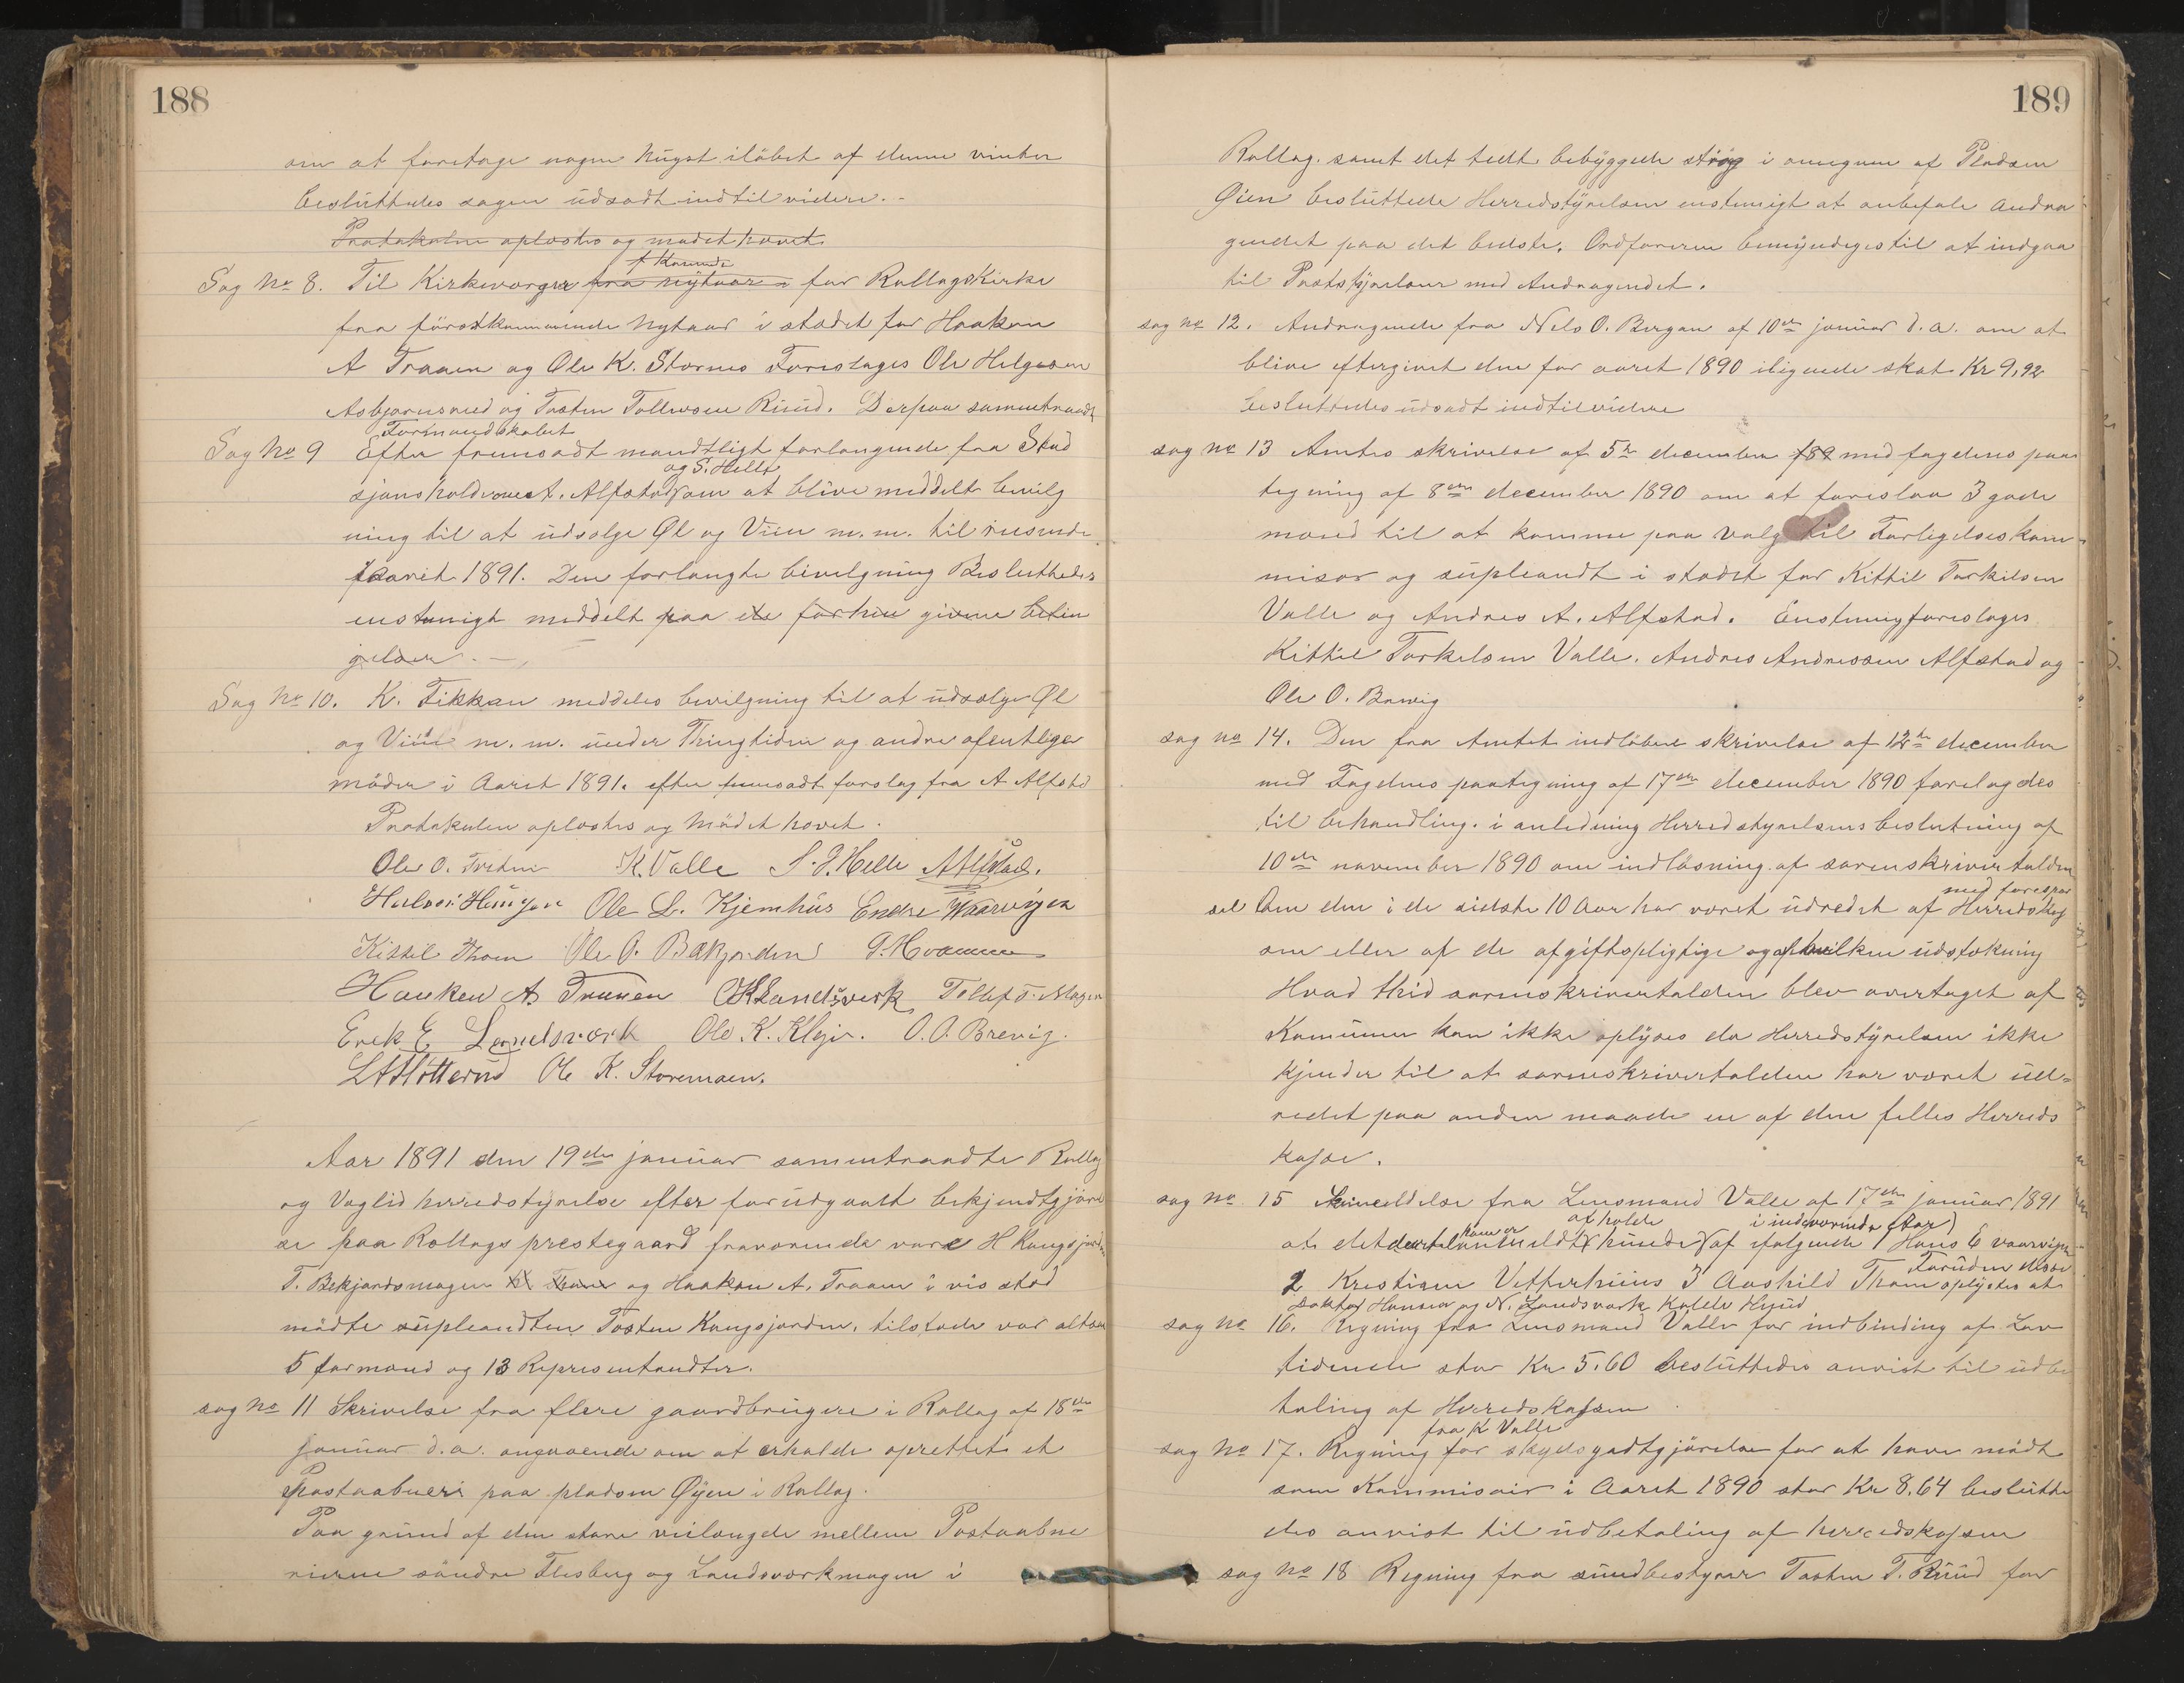 188
om at foretage nogen hugst iløbet af denne vinter
besluttedes sagen udsadt indtil videre. -
Protokolen oplæstes og mødet hævet.
Sag No 8. Til Kirkeværger fra nytaar for Rollags Kirke
fra førstkommende Nytaar i stædet for Haakon
A Traaen og Ole K. Stormo Foreslages Ole Helgesen
Asbjørnsrud og Tosten Tollevsen Ruud. Derpaa sammentraadt
Formandskabet
Sag No 9 Efter fremsadt mundtligt forlangende fra Skyd
og S. Helle
sjansholderne A. Alfstad om at blive meddelt bevilg
ning til at udsælge Øl og Viin m. m. til reisende
i aaret 1891. Den forlangte bevilgning Besluttedes
enstemigt meddelt paa de forhen givne betin
gelser. -
Sag No 10. K. Fikkan meddeles bevilgning til at udsælge Øl
og Viin m. m. under Thingtiden og andre ofentlige
møder i Aaret 1891. efter fremsadt forslag fra A Alfstd
Protokolen oplæstes og Mødet hævet.
Ole O. K. Valle S. J. Helle A Alfstad.
Halvor Ole L. Kjemhus Endre Waarvigen
Kittel Thom Ole O. Bækjorden
Haaken A. Traaen OKLandsverk Tollef T.
Erek E Landsværk Ole K. O. O. Brevig.
Ole K. Storemoen.
Aar 1891 den 19de januar sammentraadte Rollag
og Veglid herredstyrelse efter forudgaatt bekjendtgjørel
se paa Rollags prestegaard fraværende vare H Kongsjorden
T. Bekjordsmogen og Haakon A. Traaen i vis stæd
mødte supleandten Tosten Kongsjorden. tilstæde var altsaa
5 formænd og 13 Representandter.
sag No 11 Skrivelse fra flere gaardbrugere i Rollag af 18de
januar d. a. angaaende om at erholde oprettet et
Postaabneri paa pladsen Øyen i Rollag.
Paa grund af den store veilængde mellem Postaabne
rierne søndre Flesberg og Landsverkmogen i
189
Rollag. samt det tedt bebyggede strøg i omegnen af Pladsen
Øien besluttede Herredstyrelsen enstemigt at anbefale Andra
gendet paa det bedste. Ordføreren bemyndiges til at indgaa
til Poststyrelsen med Andragendet.
sag no 12. Andragende fra Nels O. Bergan af 10de januar d. a. om at
blive eftergivet den for aaret 1890 ilignede skat Kr 9,92
besluttedes udsadt indtilvidere
sag no 13 Amtes skrivelse af 5te december 189 med fogdens paa
tegning af 8de december 1890 om at foreslaa 3 gode
mænd til at komme paa valg til Forligelseskom
misær og supleandt i stædet for Kittil Torkilsen
Valle og Andres A. Alfstad. Enstemig foreslages
Kittil Torkelsen Valle. Andres Andressen Alfstad og
Ole O. Brevig
sag no 14. Den fra Amtet indløbene skrivelse af 12te december
med Fogdens paategning af 17de december 1890 forelagdes
til behandling. i anledning Herredstyrelsens beslutning af
10de november 1890 om indløsning af sorenskrivertolden
med forespør
sel Om den i de sidste 10 Aar har været udredet af Herredskas
sen eller af de afgiftspligtige og af hvilken udstrækning
Hvad thid sorenskrivertolden blev overtaget af
Komunen kan ikke oplyses da Herredstyrelsen ikke
kjender til at sorenskrivertolden har været ud-
redet paa anden maade en af den felles Herreds
kasse.
sag no 15 Anmeldelse fra Lensmand Valle af 17de januar 1891
af holde i indeværende Aar
at det anmeldt hunde af følgende 1 Hans E Vaarvigen
Foruden disse
2 Kristian Vetterhuus 3 Aashild Thom oplystes at
doktor Hansen og N. Landsværk holde Hund
sag no 16. Regning fra Lensmand Valle for indbinding af Lov
tidende stor Kr 5.60 besluttedes anvist til udbe
taling af Herredskassen
fra K Valle
sag No 17. Regning for skydsgodtgjørelse for at have mødt
som Kommisair i Aaret 1890 stor Kr 8.64 beslutte
des anvist til udbetaling af herredskassen
sag no 18 Regning fra sundbestyrer Tosten T. Ruud for